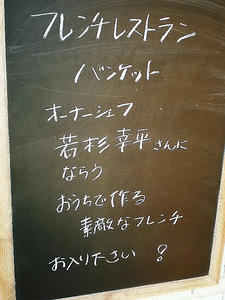 フレンチレストラン
バンケット
オーナーシェフ
若杉幸平さんに
ならう
おうちで作る
素敵なフレンチ
お入り下さい!